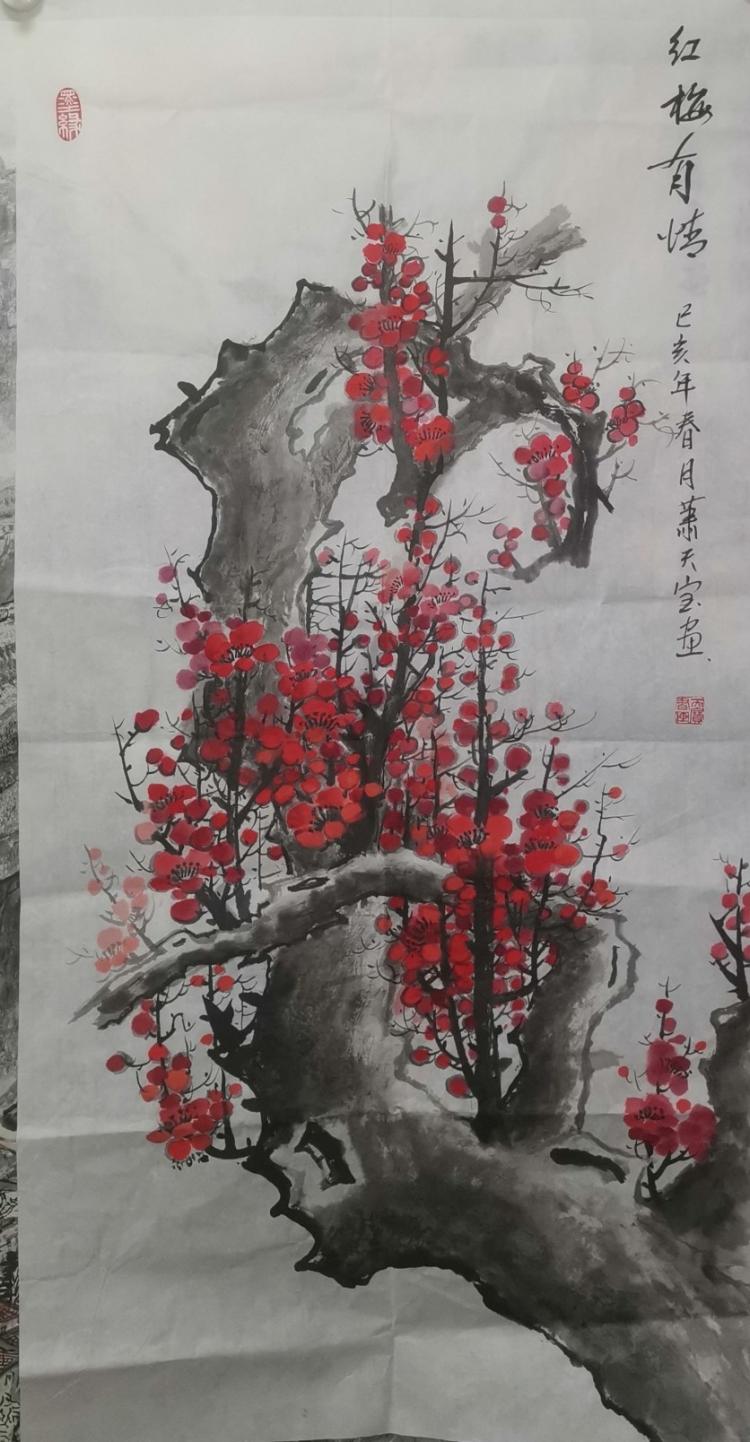 红梅有情
己亥年春月萧天宝画
墨缘